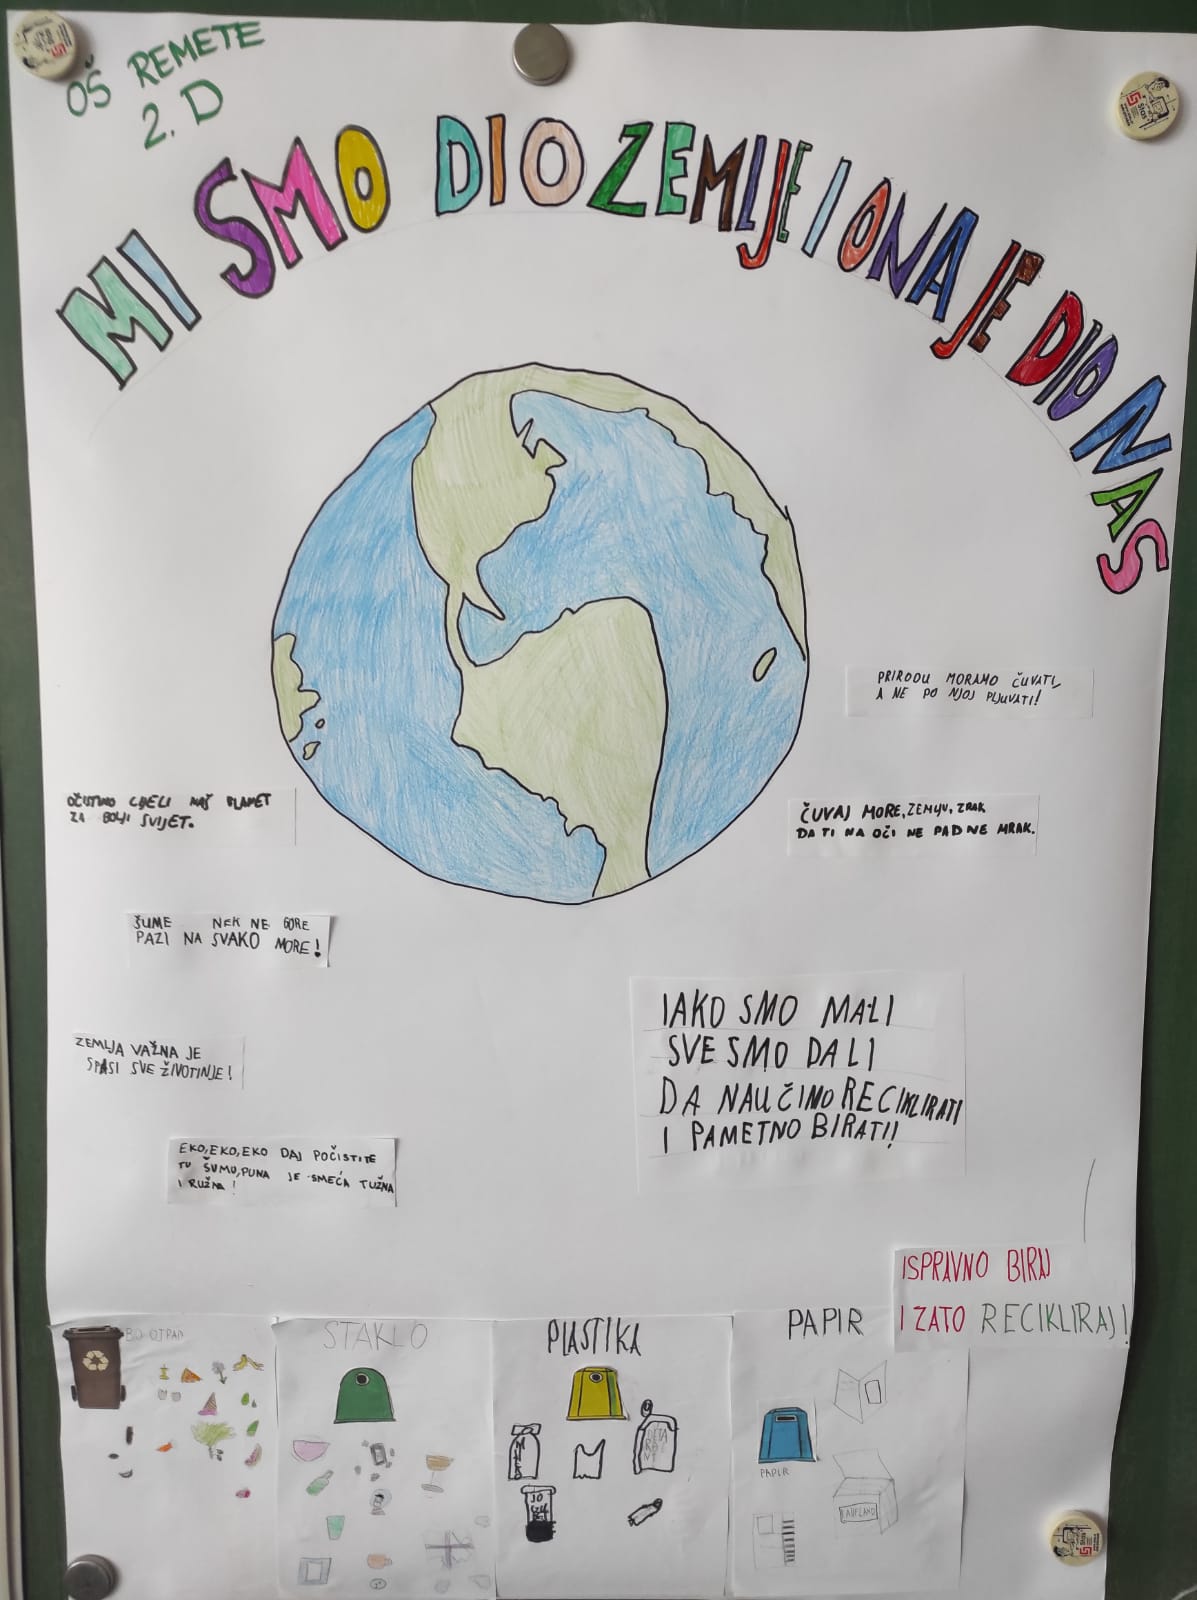 OŠ REMETE
2. D
MI SMO DIO ZEMLJE I ONA JE DIO NAS
PRIRODU MORAMO ČUVATI,
A NE PO NJOJ PLJUVATI!
OČISTIMO CIJELI NAŠ PLANET
ZA BOLJI SVIJET.
ČUVAJ MORE, ZEMLJU, ZRAK
DA TI NA OČI NE PADNE MRAK.
ŠUME NEK NE GORE
PAZI NA SVAKO MORE!
IAKO SMO MALI
SVE SMO DALI
DA NAUČIMO RECIKLIRATI
I PAMETNO BIRATI!
ZEMLJA VAŽNA JE
SPASI SVE ŽIVOTINJE!
EKO, EKO, EKO DAJ POČISTITE
TU ŠUMU, PUNA JE SMEĆA TUŽNA
I RUŽNA!
ISPRAVNO BIRAJ
I ZATO RECIKLIRAJ!
BIO OTPAD
STAKLO
PLASTIKA
PAPIR
PAPIR